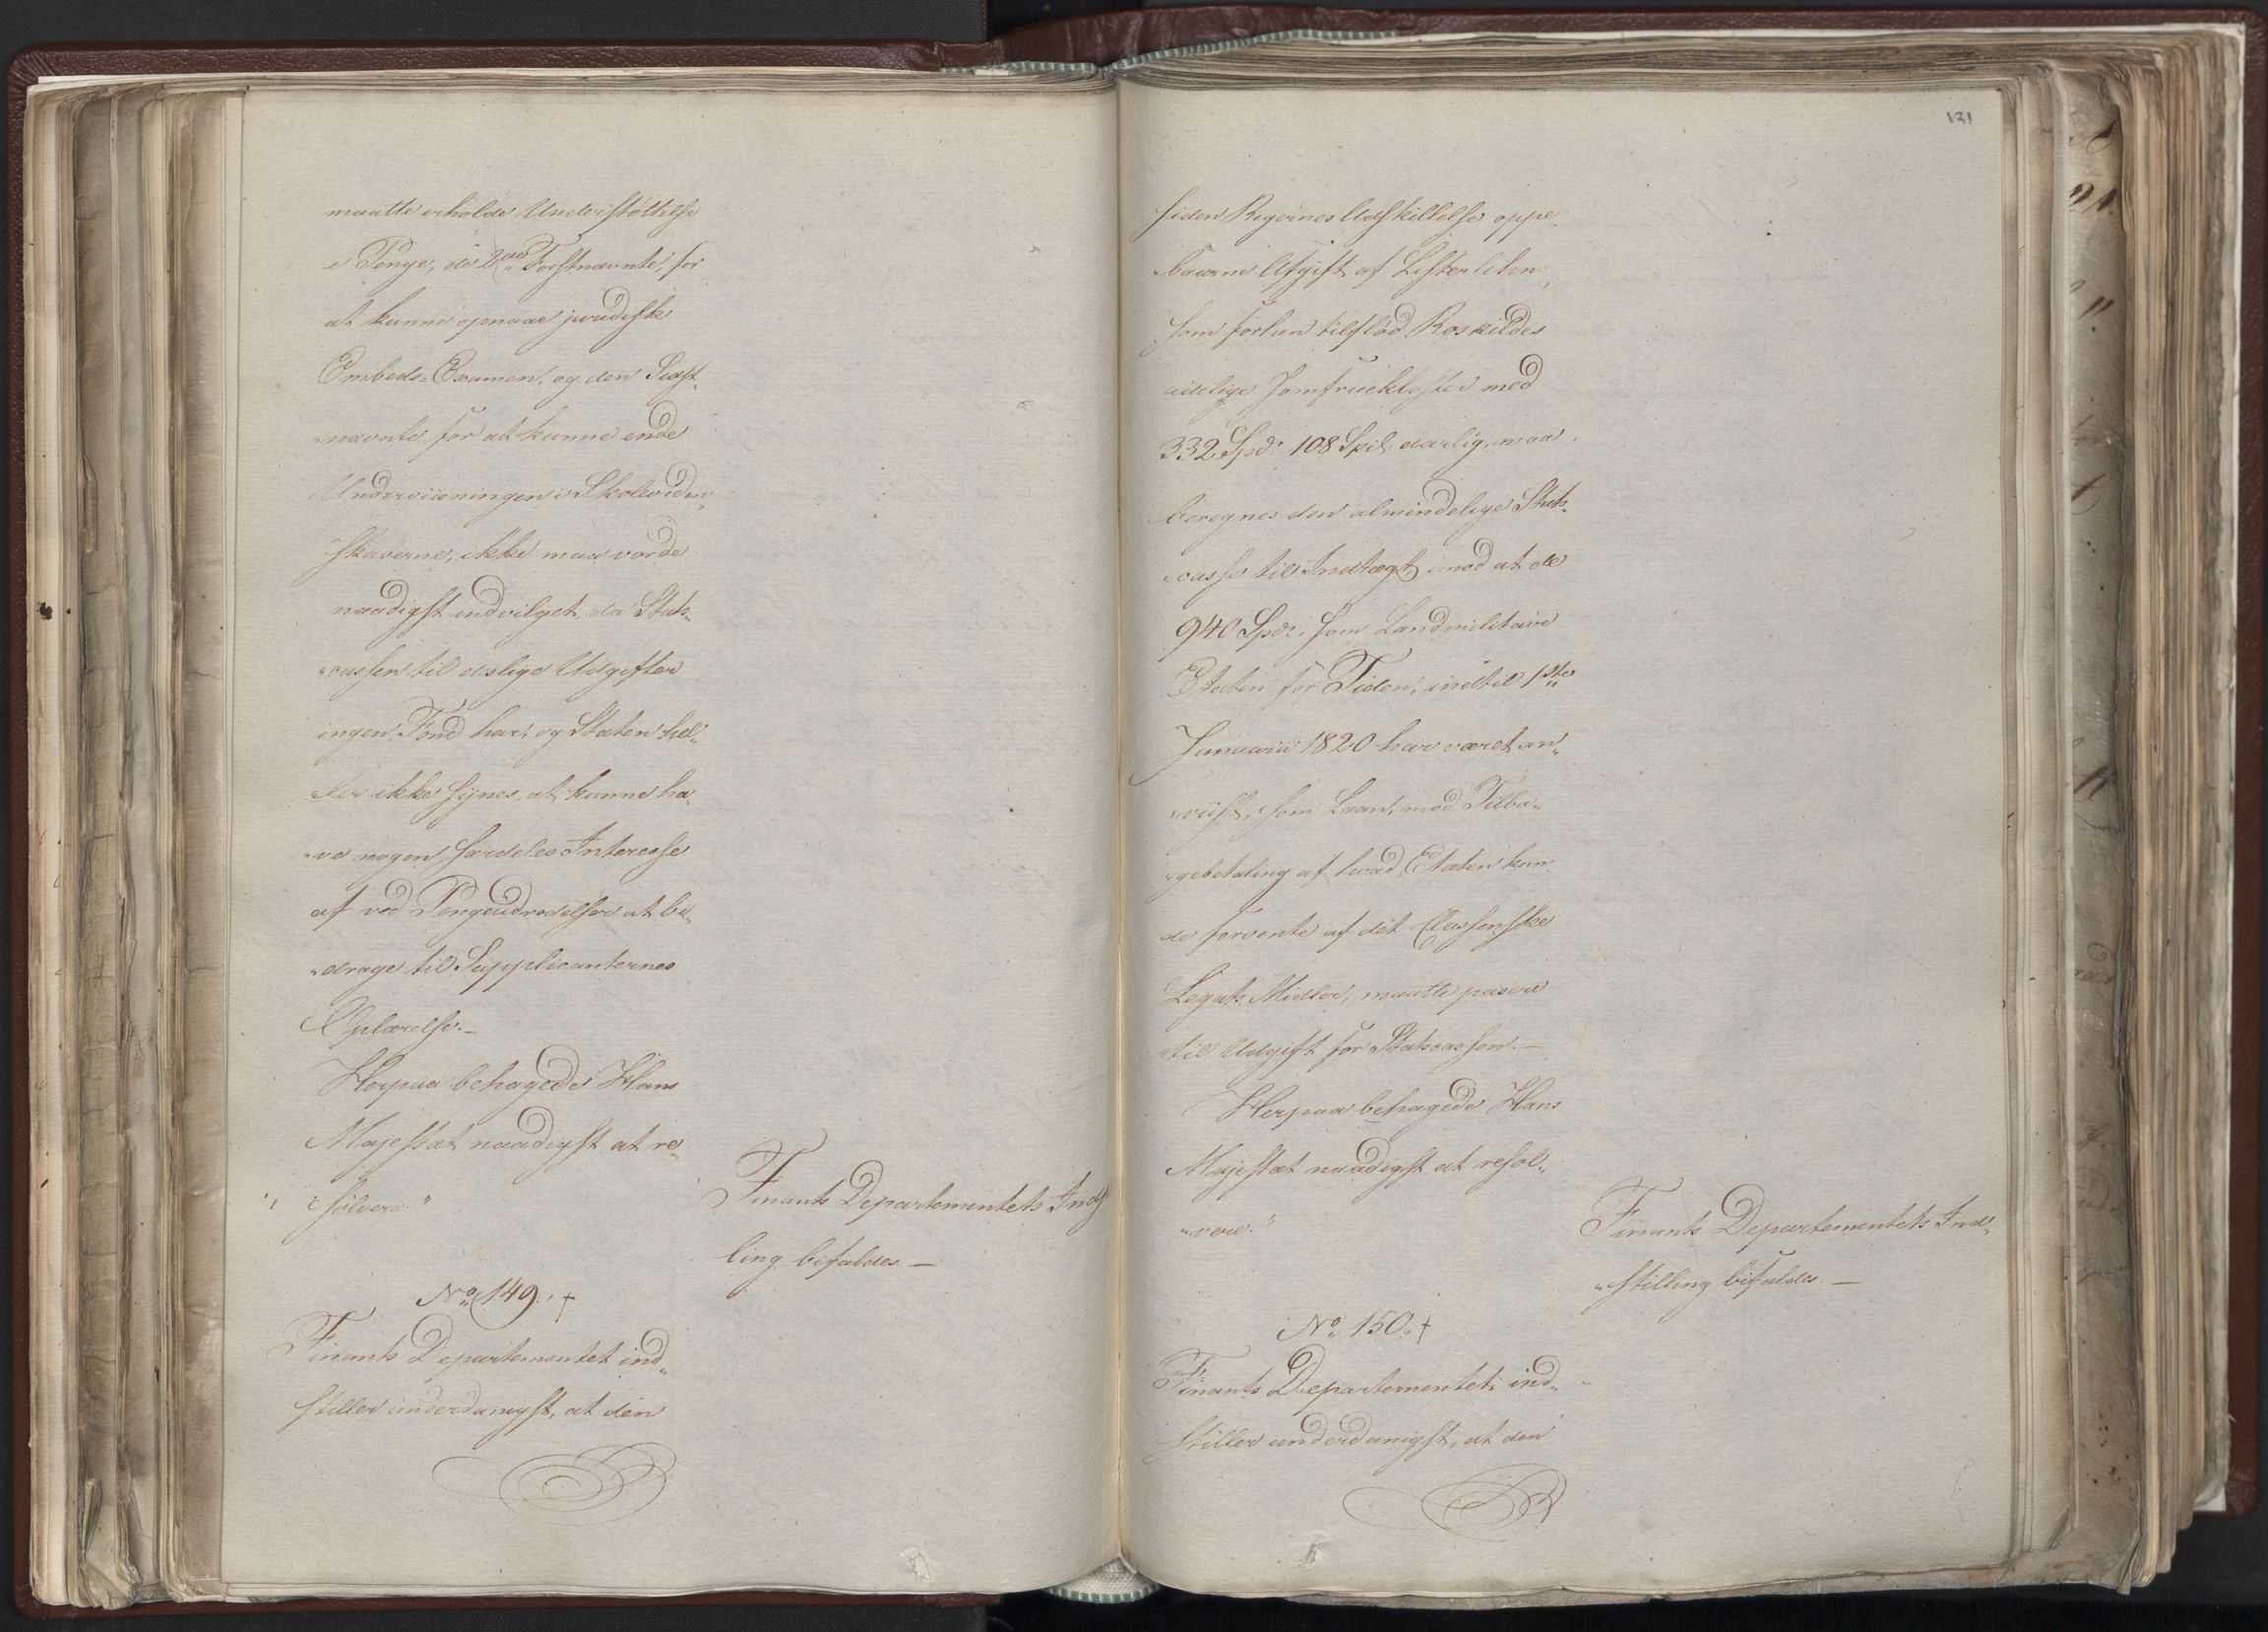 maatte erholde Understøttelse
i Penge, de 2de Førstnævnte, for
at kunne opnaae juridiske
Embeds-Examen, og den Sidst-
nævnte for at kunne ende
Underviisningen i Skoleviden-
skaberne, ikke maa vorde
naadigst indvilget, da Stats-
cassen til deslige Udgifter
ingen Fond har, og Staten hel-
ler ikke synes at kunne ha-
ve nogen særdeles Interesse
af ved Pengeudredelser at bi-
drage til Supplicanternes
Oplærelse.—
Herpaa behagede Hans
Majestæt naadigst at re-
solvere:"
Finants Departementets Ind
ling bifaldes —
No 149. †
Finants Departementet ind-
stiller underdanigst, at den
131
siden Rigernes Adskillelse oppe-
baarne Afgift af Lister Lehn,
som forhen tilflød Roskildes
adelige Jomfruekloster med
332 Spd. 108 Skil. aarlig, maa
beregnes den almindelige Stats-
casse til Indtægt, imod at de
940 Spd., som Landmilitaire
Etaten for Tiden, indtil 1ste
Januarii 1820 har været an-
viist, som Laan, mod Tilba-
gebetaling af hvad Etaten kun-
de forvente af det Classenske
Legats Midler, maatte passere
til Udgift for Statscassen.—
Herpaa behagede Hans
Majestæt naadigst at resol-
vere:"
Finants Departementets Ind-
stilling bifaldes —
No 150. †
Finants Departementet ind-
stiller underdanigst, at den